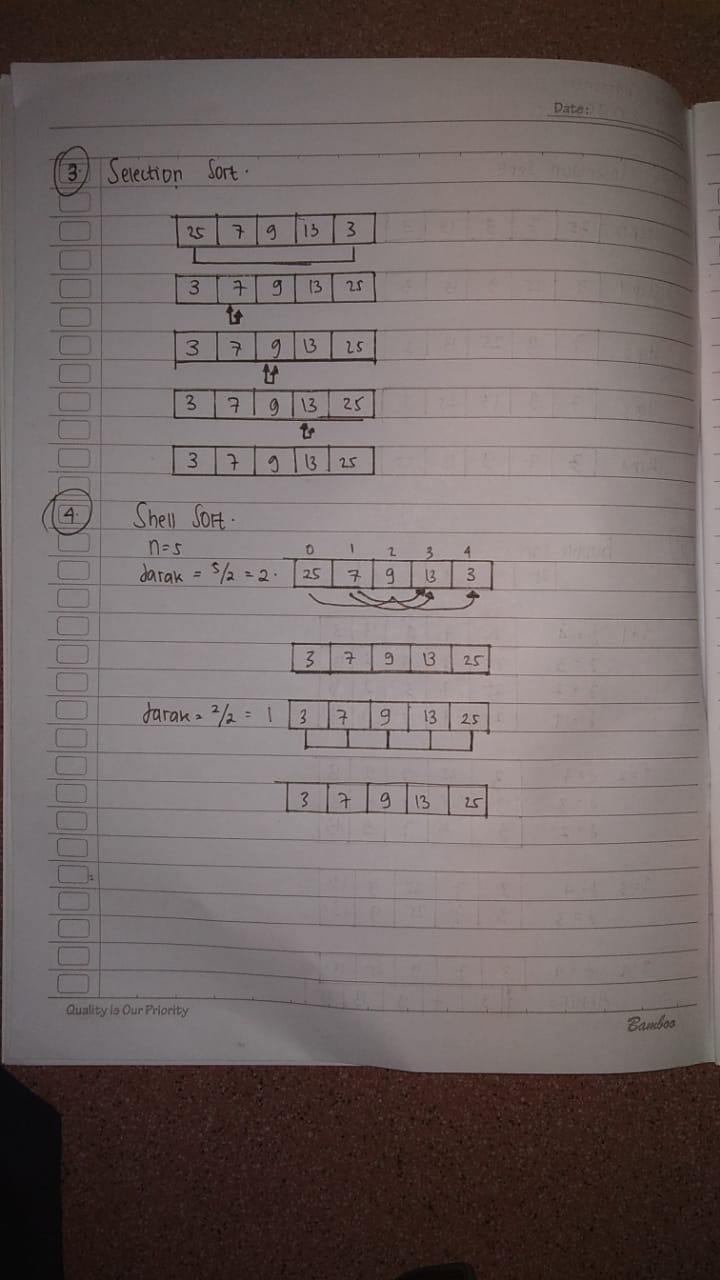 Date:
3. Selection Sort.
25 7 9 13 3
3 7 9 13 25
3 7 9 13 25
3 7 9 13 25
3 7 9 13 25
4. Shell Sort.
n=5
0 1 2 3 4
Jarak = 5/2 = 2. 25 7 9 13 3
3 7 9 13 25
Jarak = 2/2 = 1 3 7 9 13 25
3 7 9 13 25
Quality is Our Priority
Bamboo